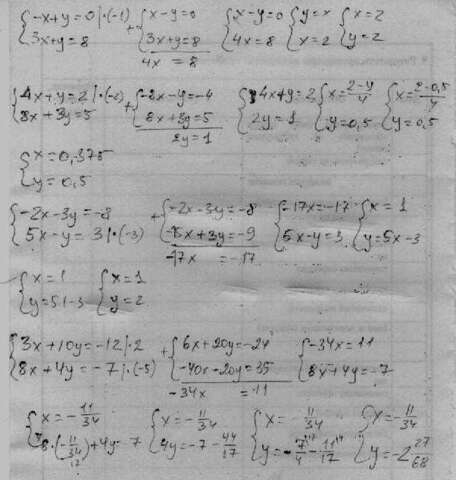 {-x+y=0 |·(-1) {3x+y=8 + {x-y=0 {3x+y=8 4x = 8 {x-y=0 {4x=8 {y=x {x=2 {x=2 {y=2
{4x+y=2 |·(-2) {8x+3y=5 + {-8x-y=-4 {8x+3y=5 2y=1 {4x+y=2 {2y=1 {x=2-y/4 {y=0,5 {x=2-0,5/4 {y=0,5
{x=0,375 {y=0,5
{-2x-3y=-8 {5x-y=3 |·(-3) + {-2x-3y=-8 {-15x+3y=-9 -17x = -17 {-17x=-17 {5x-y=3 {x=1 {y=5x-3
{x=1 {y=5·1-3 {x=1 {y=2
{3x+10y=-12 |·2 {8x+4y=-7 |·(-5) + {6x+20y=-24 {-40x-20y=35 -34x = 11 {-34x=11 {8x+4y=-7
{x=-11/34 {8·(-11/34)+4y=7 {x=-11/34 {4y=-7-44/17 {x=-11/34 {y=-7/4-11/17 {x=-11/34 {y=-2 27/68